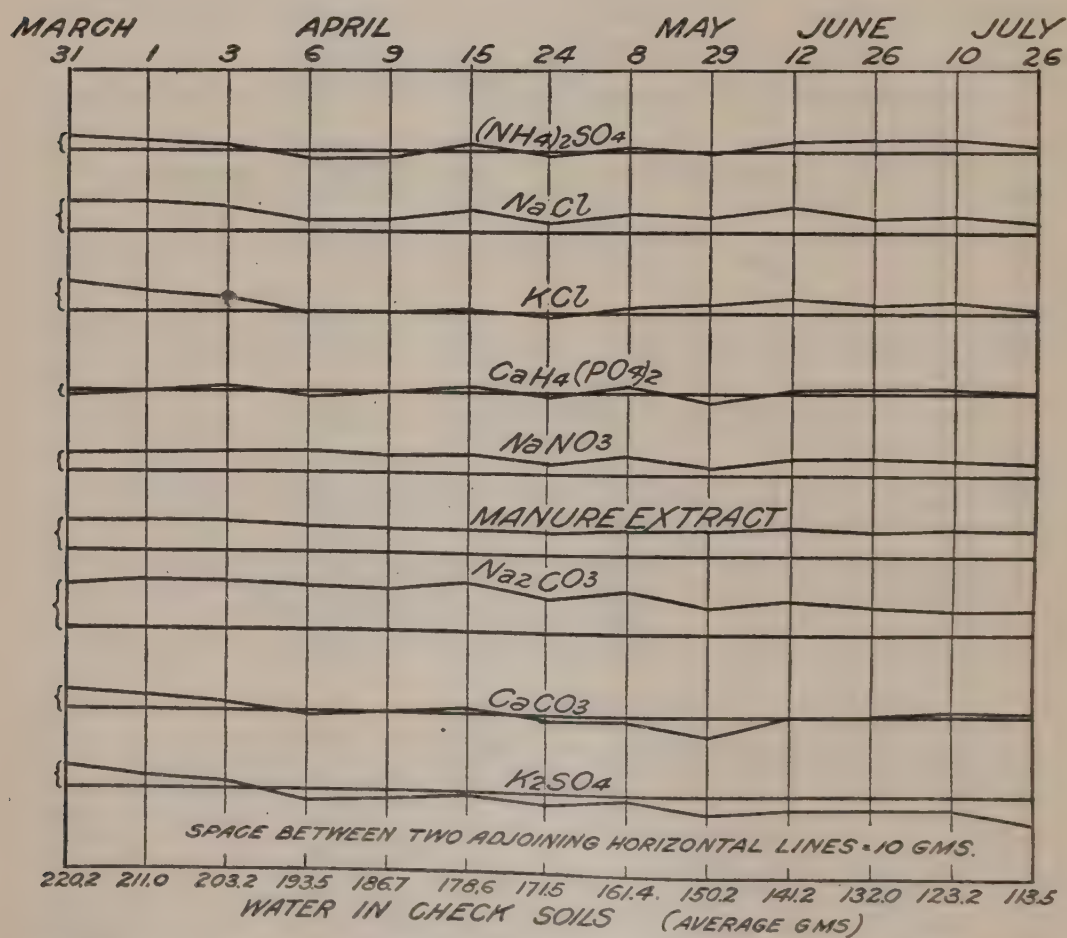 MARCH APRIL MAY JUNE JULY
31 1 3 6 9 15 24 8 29 12 26 10 26
(NH4)2SO4
NaCl
KCl
CaH4(PO4)2
NaNO3
MANURE EXTRACT
Na2CO3
CaCO3
K2SO4
SPACE BETWEEN TWO ADJOINING HORIZONTAL LINES = 10 GMS.
220.2 211.0 203.2 193.5 186.7 178.6 171.5 161.4. 150.2 141.2 132.0 123.2 113.5
WATER IN CHECK SOILS (AVERAGE GMS)